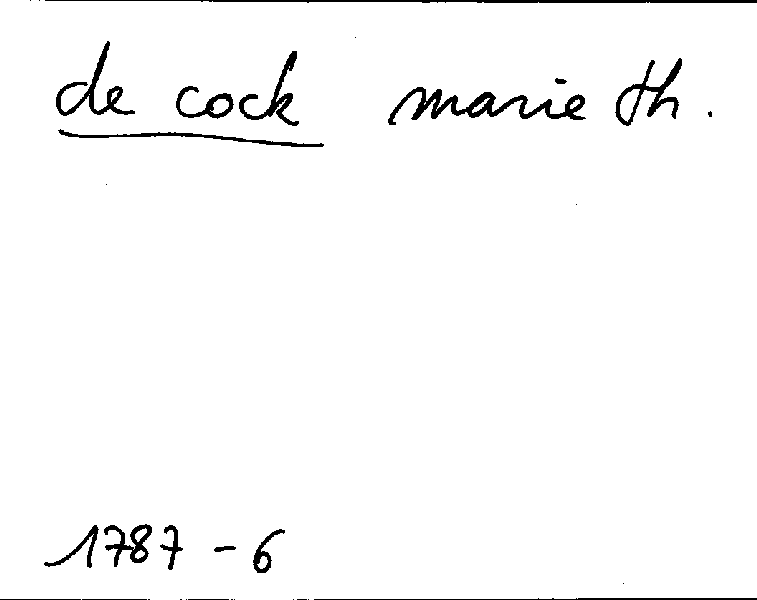 de cock marie th.
1787 - 6